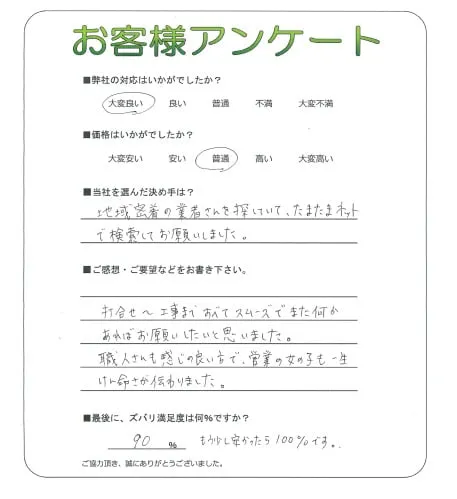 お客様アンケート
■弊社の対応はいかがでしたか？
大変良い 良い 普通 不満 大変不満
■価格はいかがでしたか？
大変安い 安い 普通 高い 大変高い
■当社を選んだ決め手は？
地域密着の業者さんを探していて、たまたまネット
で検索してお願いしました。
■ご感想・ご要望などをお書き下さい。
打合せ〜工事まですべてスムーズでまた何か
あればお願いしたいと思いました。
職人さんも感じの良い方で、営業の女の子も一生
けん命さが伝わりました。
■最後に、ズバリ満足度は何%ですか？
90 % もう少し安かったら100%です。
ご協力頂き、誠にありがとうございました。